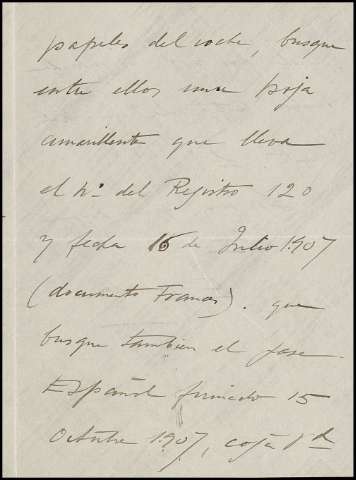 papeles del coche, busque
entre ellos una hoja
amarillenta que lleva
el nº del Registro 120
y fecha 16 de Julio 1907
(documento Frances). que
busque tambien el pase
Español firmado 15
Octubre 1907, coja Vd